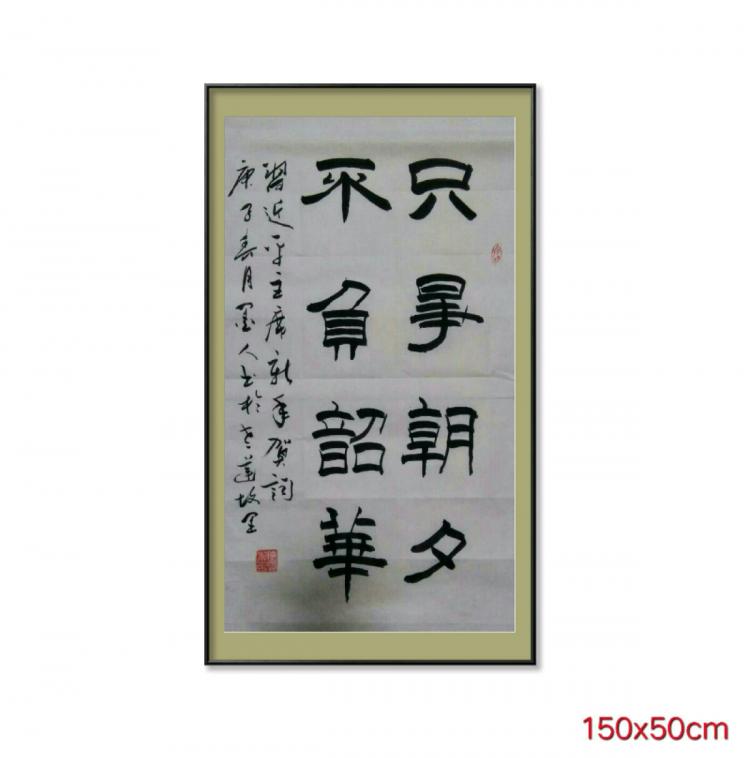 只爭朝夕
不負韶華
習近平主席新年贺詞
庚子春月墨人书於老蓮故里
150x50cm